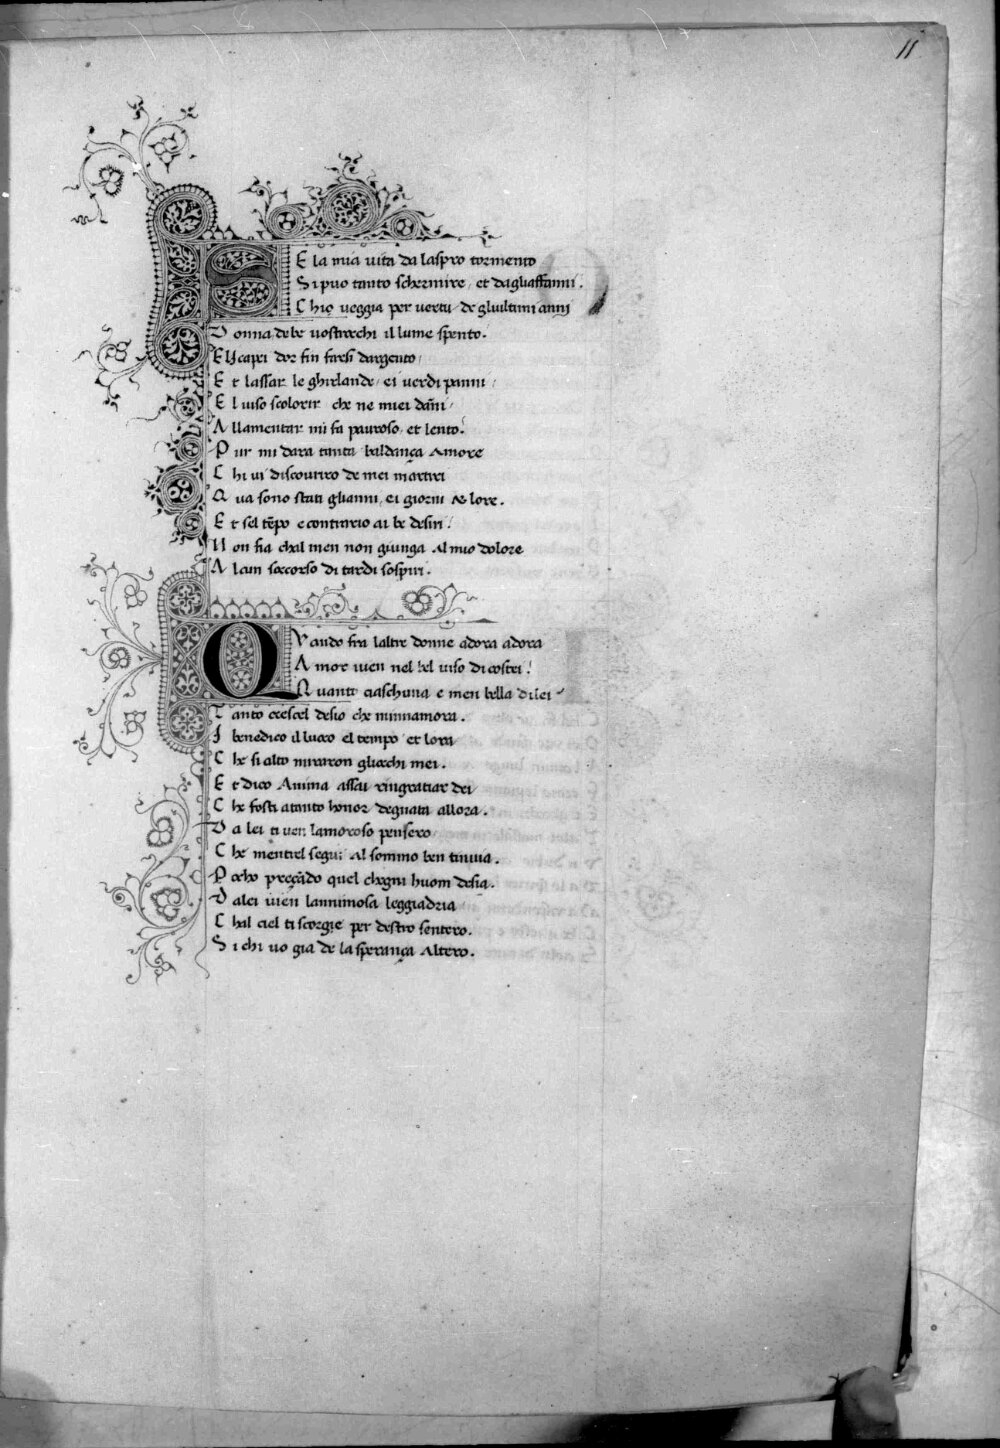 11
SE la mia vita da laspro tormento
Si puo tanto schermire / et dagliaffanni.
Chio veggia per vertu / de gliultimi anni
Donna de be vostrocchi il lume spento.
E li capei dor fin farsi dargento
Et lassar le ghirlande / ei verdi panni /
El viso scolorir che ne miei dāni /
Allamentar mi fa pauroso / et lento.
Pur mi dara tanta baldança Amore
Chi vi discovriro de mei martiri
Qua sono stati glianni / ei giorni & lore.
Et sel tēpo e contrario ai be desiri /
Non fia chal men non giunga al mio dolore
Alcun soccorso di tardi sospiri.
QVando fra laltre donne adora adora
Amor vien nel bel viso di costei /
Quanto ciaschuna e men bella di lei
Tanto cresce l desio che minnamora.
I benedico il luoco el tempo et lora
Che si alto miraron gliocchi mei.
Et dico Anima assai ringratiar dei
Che fosti atanto honor degnata allora.
Da lei ti ven lamoroso pensero
Che mentrel segui al sommo ben tinvia.
Pocho preçādo quel chogni huom desia.
Da lei vien lannimosa leggiadria
Chal ciel ti scorgie per destro sentero.
Si chi vo gia de la sperança Altero.